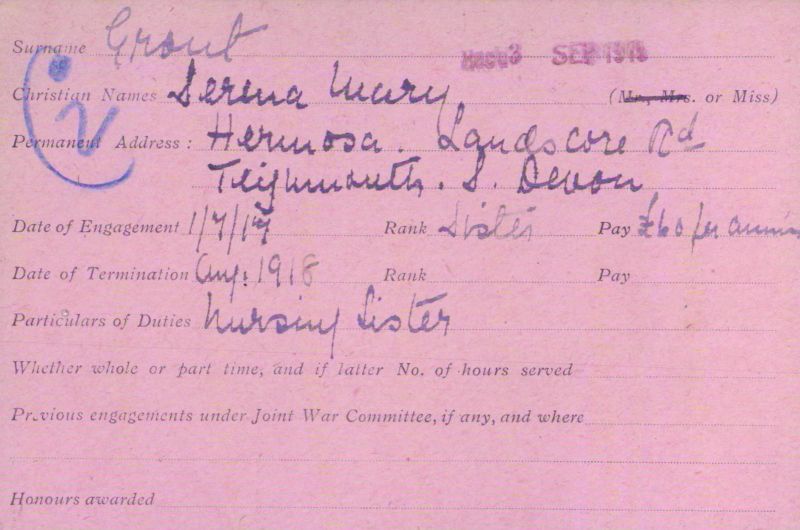 Surname Grout
3 SEP 1918
Christian Names Serena Mary (Mr., Mrs. or Miss)
Permanent Address: Hermosa. Landscore Rd
Teignmouth. S. Devon
Date of Engagement 1/7/17 Rank Sister Pay £60 per annum
Date of Termination Aug: 1918 Rank Pay
Particulars of Duties Nursing Sister
Whether whole or part time, and if latter No. of hours served
Previous engagements under Joint War Committee, if any, and where
Honours awarded